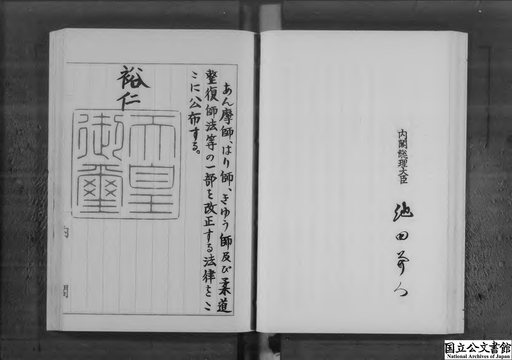 あん摩師、はり師、きゆう師及び柔道
整復師法等の一部を改正する法律をこ
こに公布する。
裕仁
天皇
御璽
内閣
内閣総理大臣
池田勇人
国立公文書館
National Archives of Japan